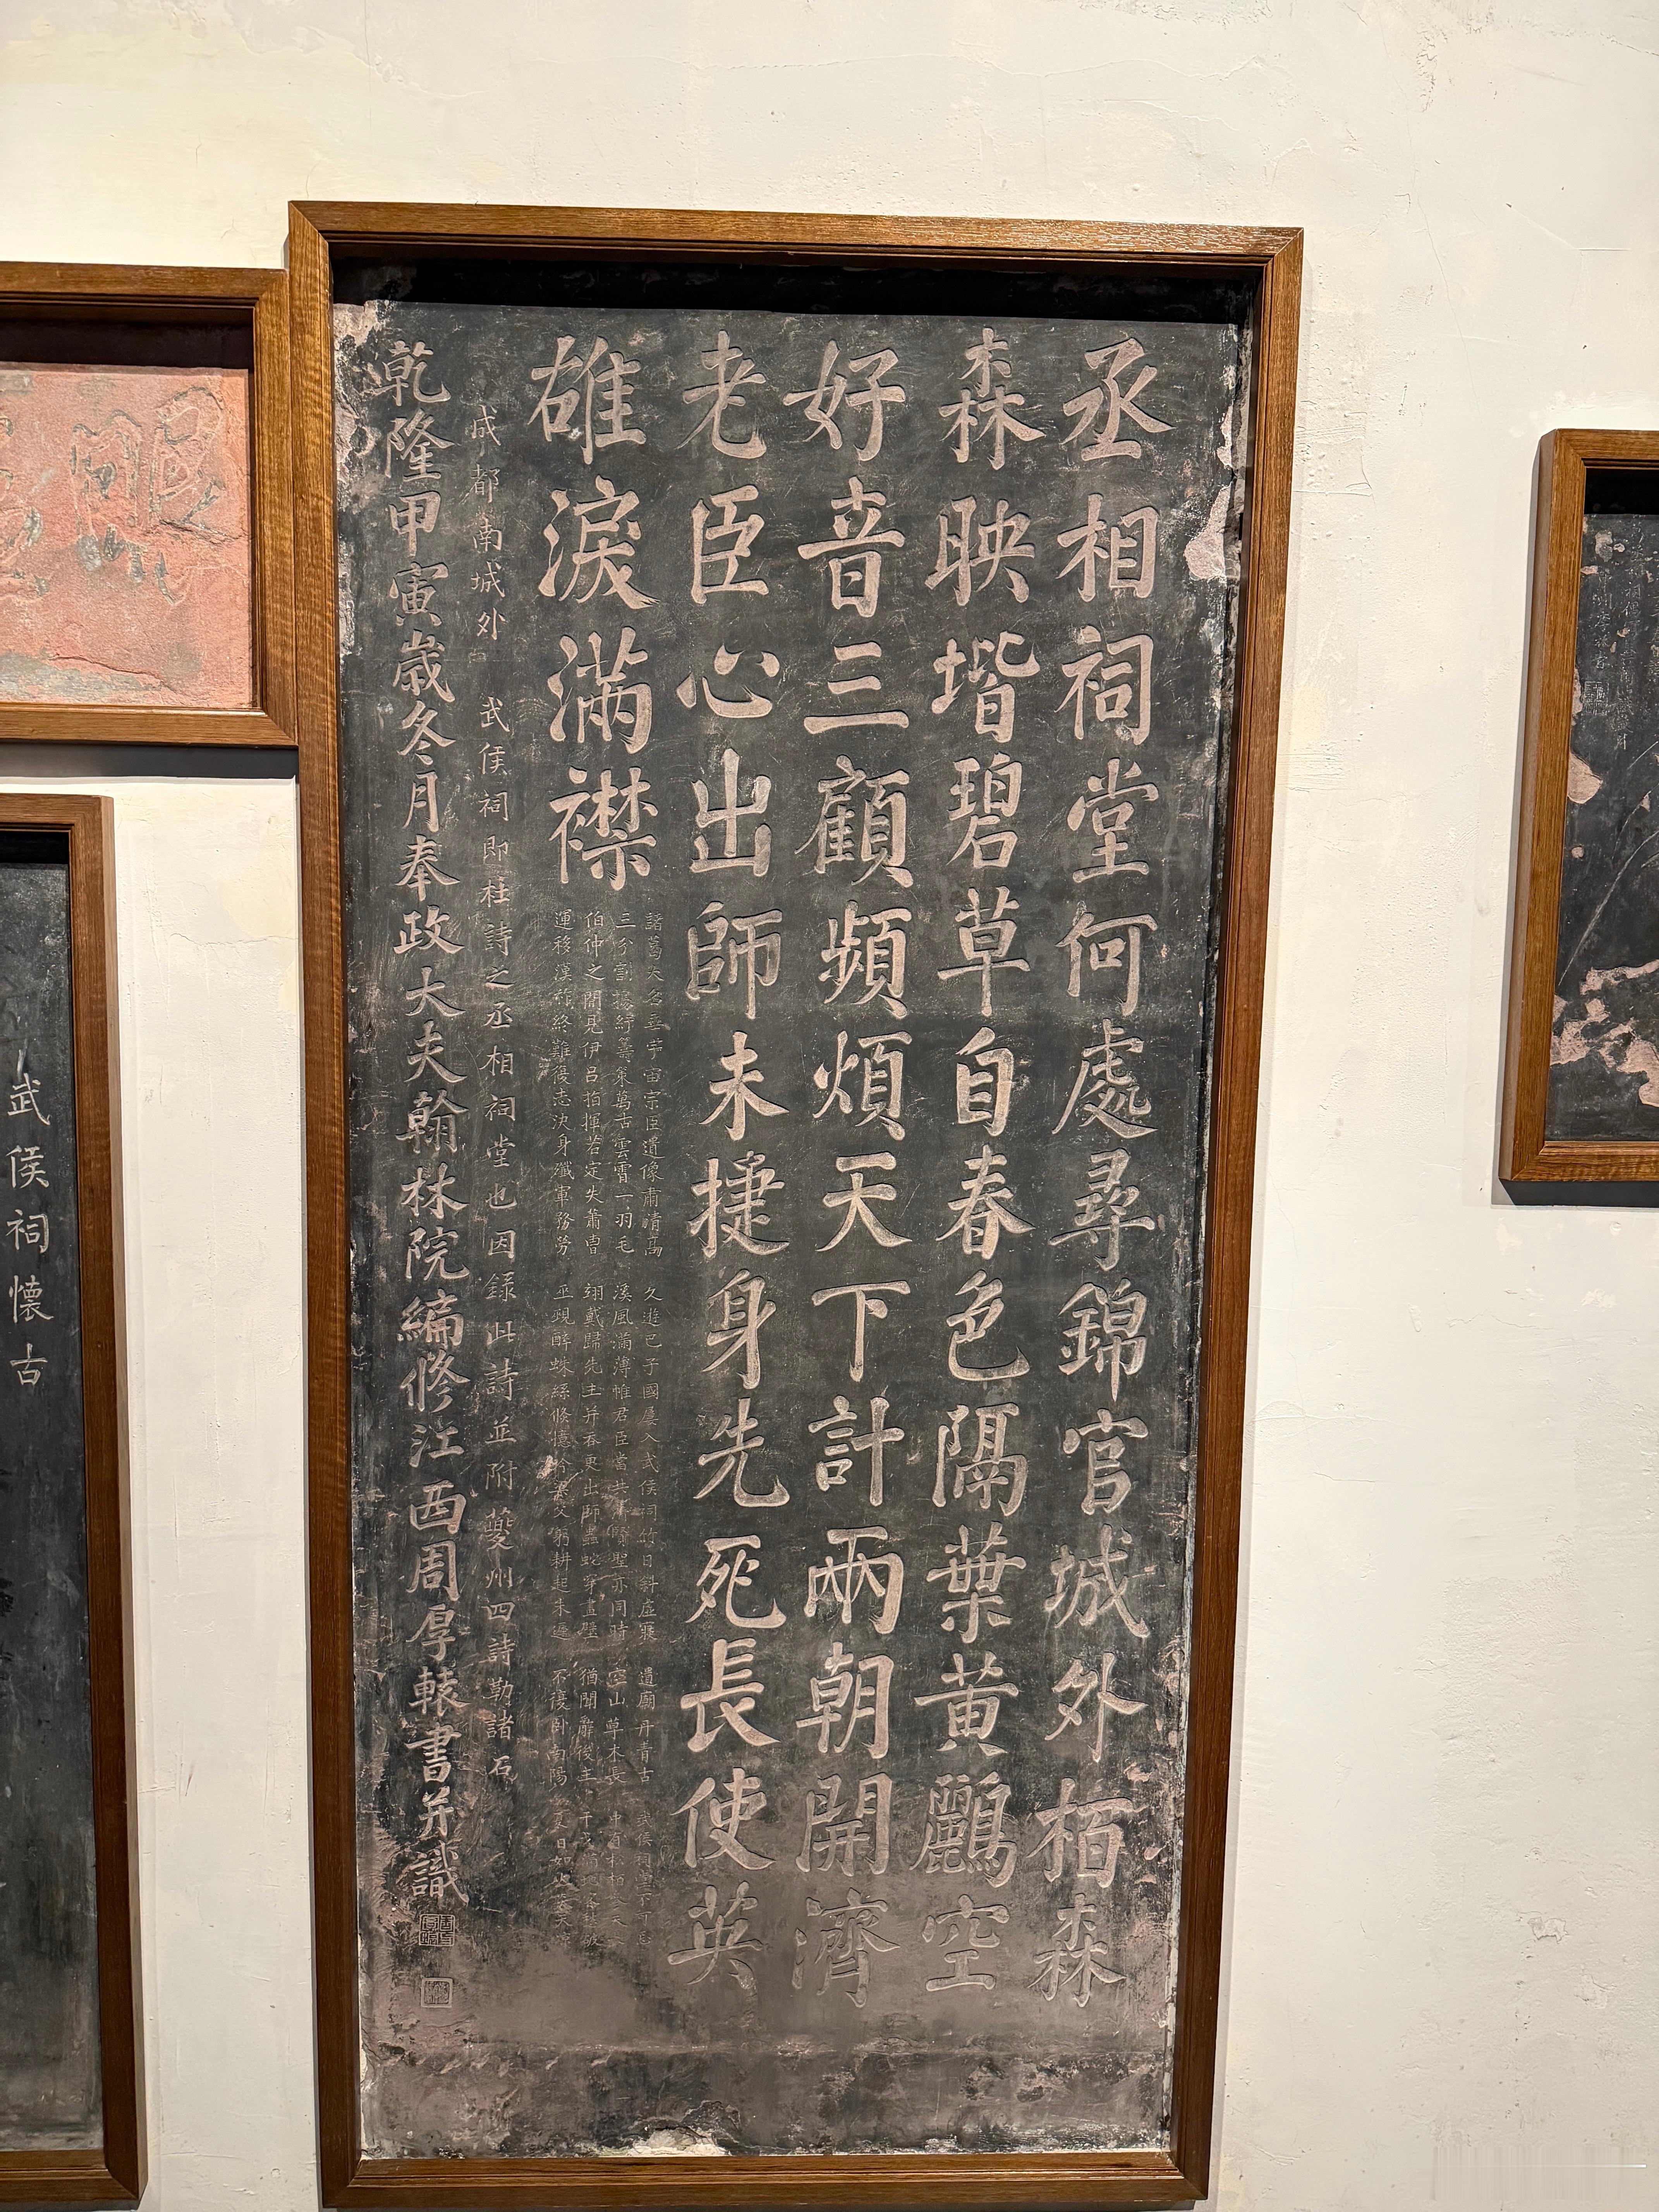 丞相祠堂何處尋錦官城外栢森
森映堦碧草自春色隔葉黃鸝空
好音三顧頻煩天下計兩朝開濟
老臣心出師未捷身先死長使英
雄淚滿襟
諸葛大名垂宇宙宗臣遺像肅清高
三分割據紆籌策萬古雲霄一羽毛
伯仲之間見伊呂指揮若定失蕭曹
運移漢祚終難復志決身殲軍務勞
久遊巴子國屢入武侯祠竹日斜虛寢
溪風滿薄帷君臣當共濟賢聖亦同時
翊戴歸先主并吞更出師蟲蛇穿畫壁
巫覡醉蛛絲倐憶吟梁父躬耕起未遲
遺廟丹青古
空山草木長
猶聞辭後主
不復臥南陽
武侯祠堂不可忘
中有松柏參天長
成都南城外 武侯祠即杜詩之丞相祠堂也因錄此詩並附夔州四詩勒諸石
乾隆甲寅歲冬月奉政大夫翰林院編修江西周厚轅書并識
武侯祠懷古